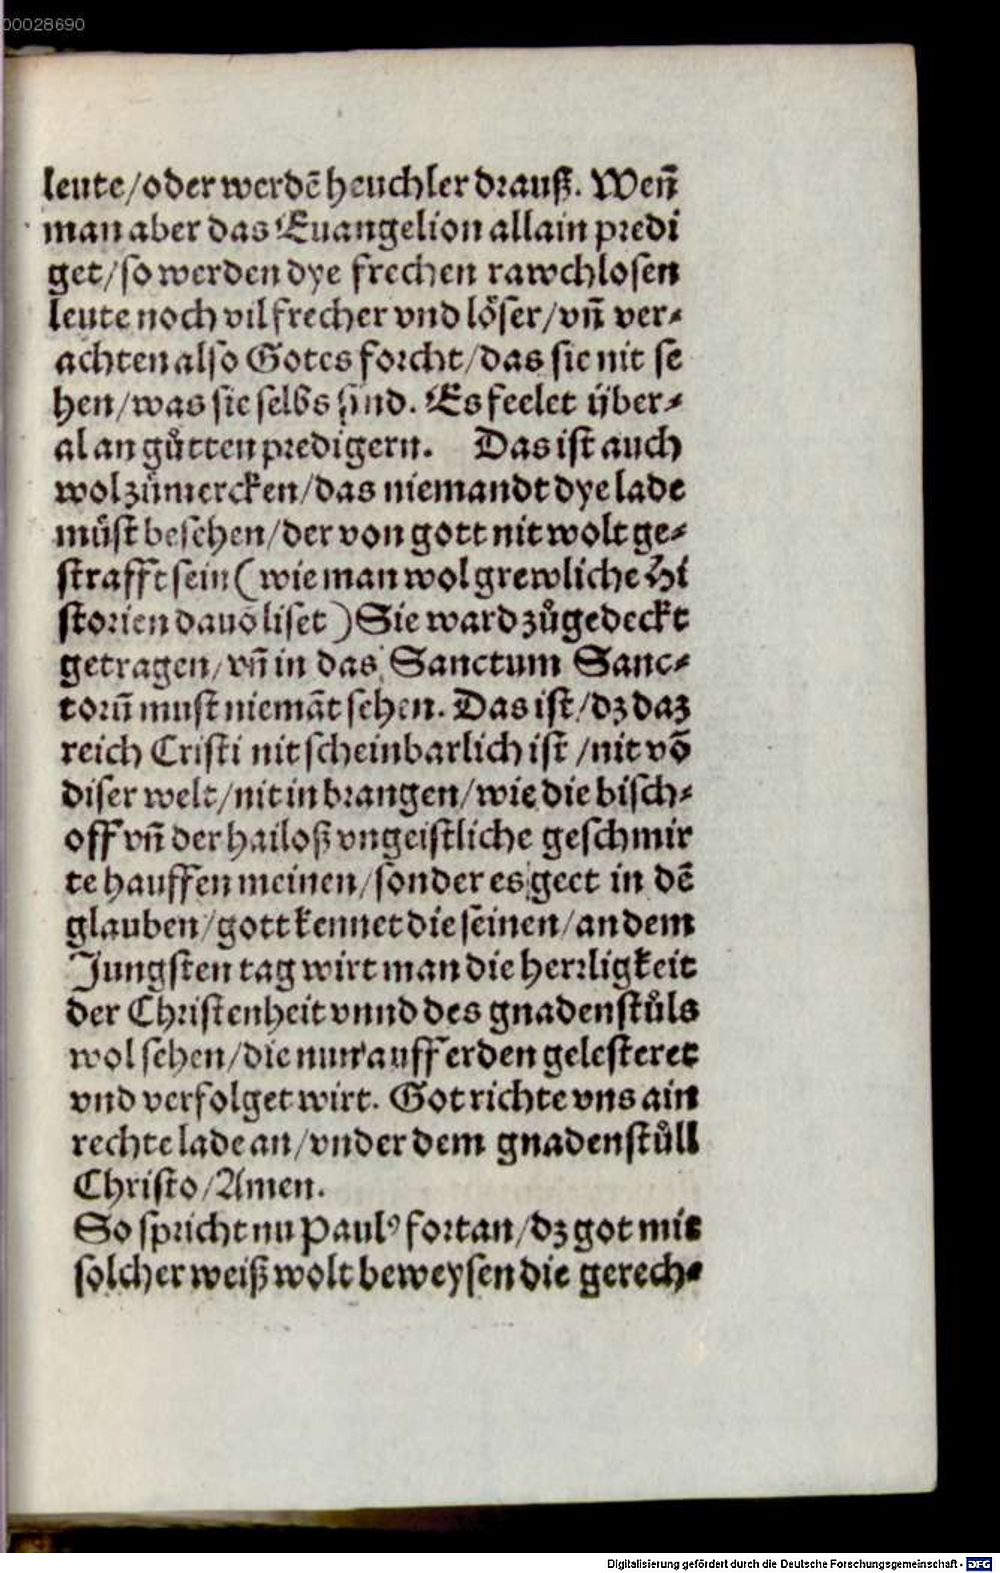 00028690
leute/oder werdē heuchler drauß. Weñ
man aber das Euangelion allain predi
get/so werden dye frechen rawchlosen
leute noch vil frecher vnd löser/vñ ver-
achten also Gotes forcht/das sie nit se
hen/was sie selbs sind. Es feelet über-
al an gůtten predigern. Das ist auch
wol zůmercken/das niemandt dye lade
můst besehen/der von gott nit wolt ge-
strafft sein (wie man wol grewliche Hi
storien dauō liset) Sie ward zůgedeckt
getragen/vñ in das Sanctum Sanc-
torū must niemāt sehen. Das ist/dz daz
reich Cristi nit scheinbarlich ist/nit vō
diser welt/nit in brangen/wie die bisch-
off vñ der hailoß vngeistliche geschmir
te hauffen meinen/sonder es geet in dē
glauben/gott kennet die seinen/an dem
Jungsten tag wirt man die herrligkeit
der Christenheit vnnd des gnadenstůls
wol sehen/die nun auff erden gelesteret
vnd verfolget wirt. Got richte vns ain
rechte lade an/vnder dem gnadenstůll
Christo/Amen.
So spricht nu Paulꝰ fortan/dz got mit
solcher weiß wolt beweysen die gerech-
Digitalisierung gefördert durch die Deutsche Forschungsgemeinschaft - DFG